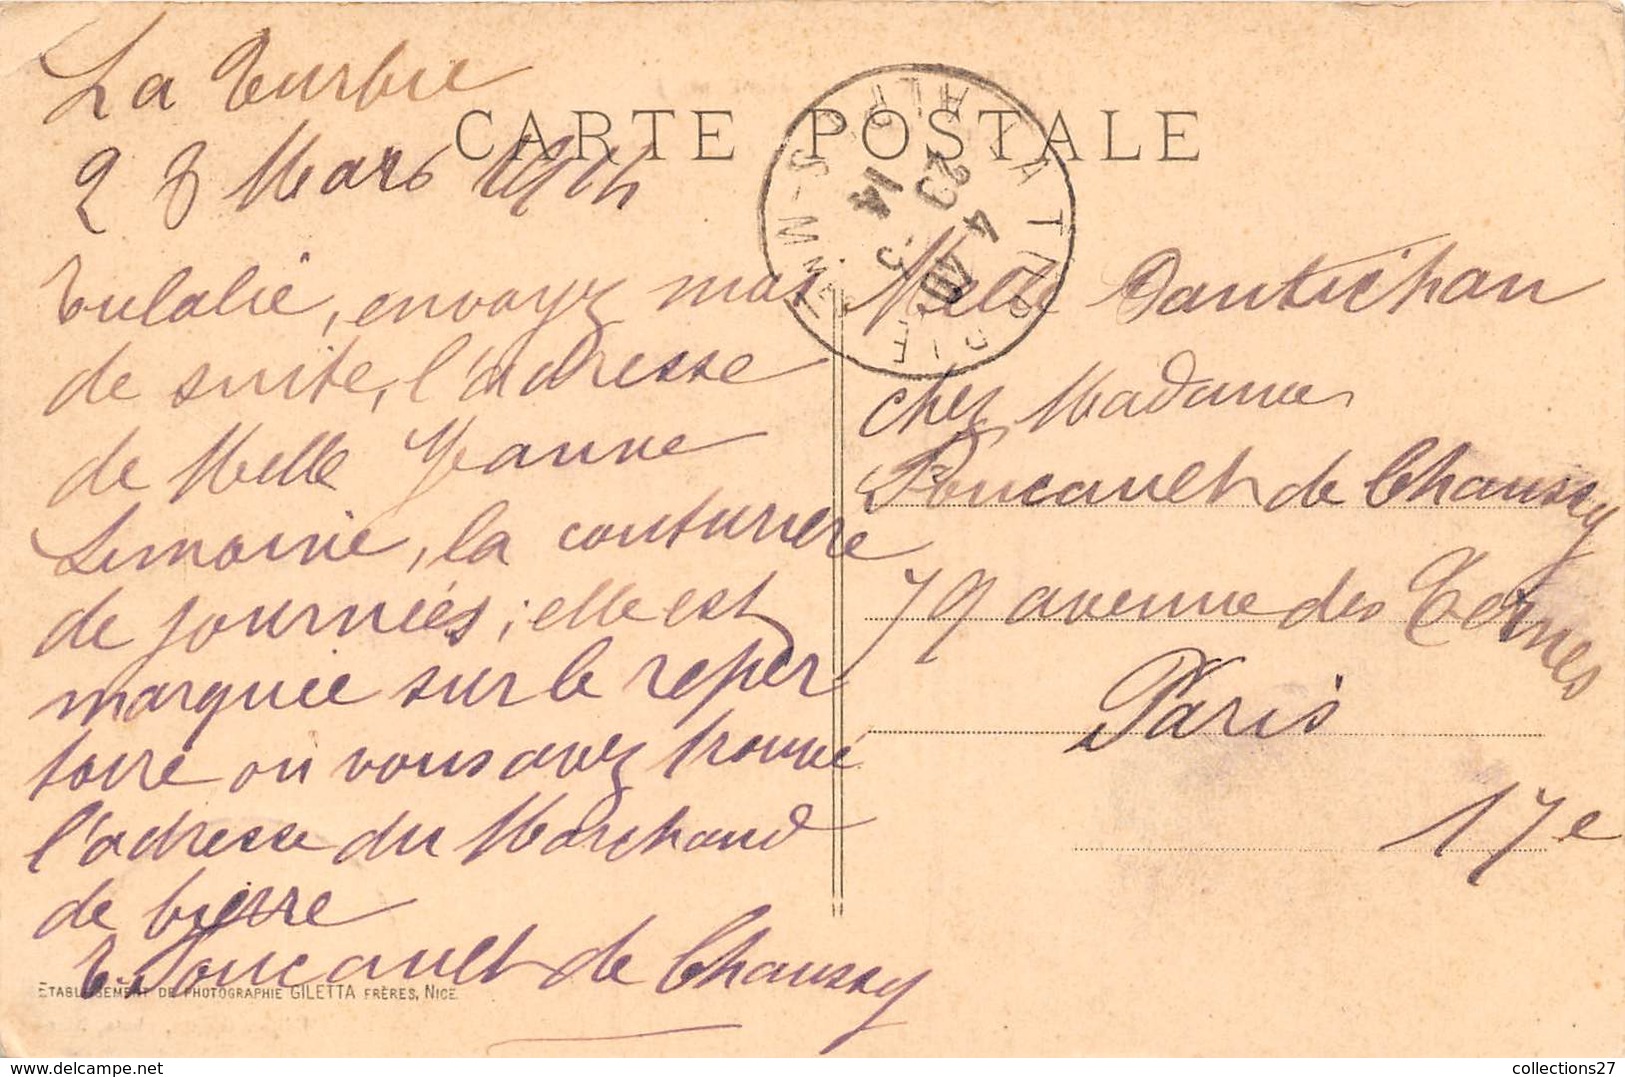 CARTE POSTALE
La Turbie
28 Mars 1914
Eulalie, envoyez moi
de suite, l'adresse
de Melle Jeanne
Lemoine, la couturière
de journées ; elle est
marquée sur le reper
toire où vous avez trouvé
l'adresse du Marchand
de bierre
E. Foucault de Chaussy
ÉTABLISSEMENT DE PHOTOGRAPHIE GILETTA FRÈRES, NICE
LA TURBIE
ALP.-MMES
4 40
29 -3
14
Melle Dantichan
chez Madame
Foucault de Chaussy
79 avenue des Ternes
Paris
17e
collections27